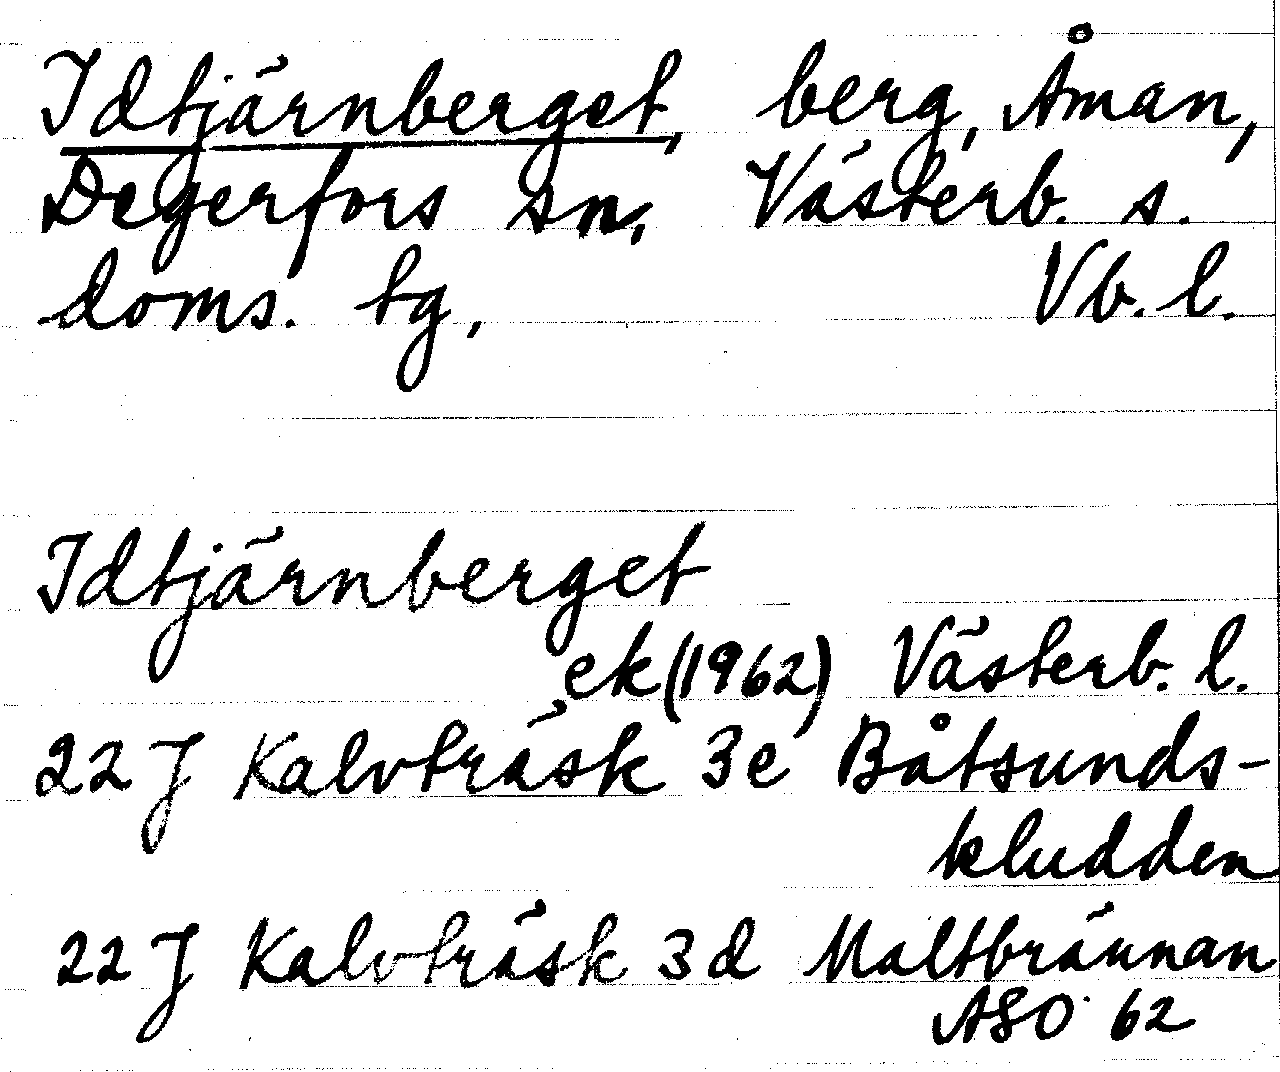 Idtjärnberget, berg, Åman,
Degerfors sn, Västerb. s.
doms. tg, Vb. l.
Idtjärnberget
ek (1962) Västerb. l.
22 J Kalvträsk 3e Båtsunds-
kludden
22 J Kalvträsk 3d Maltbrännan
ASO 62